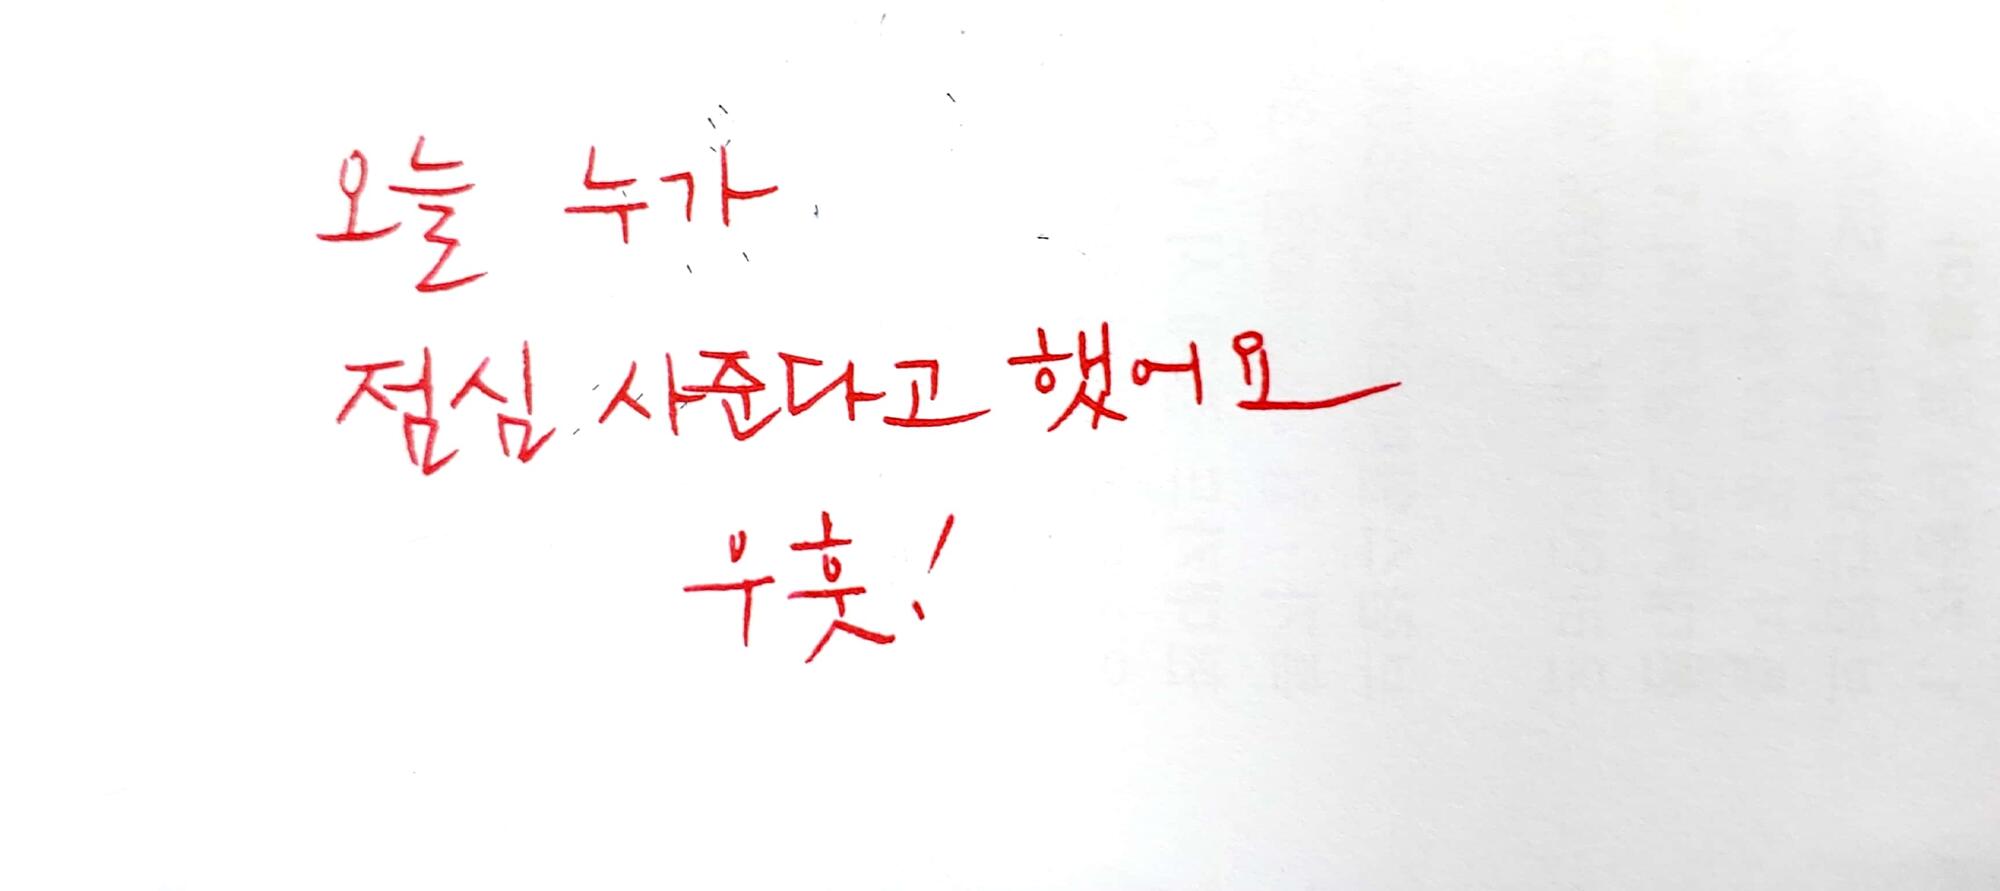 오늘 누가
점심 사준다고 했어요
우훗!